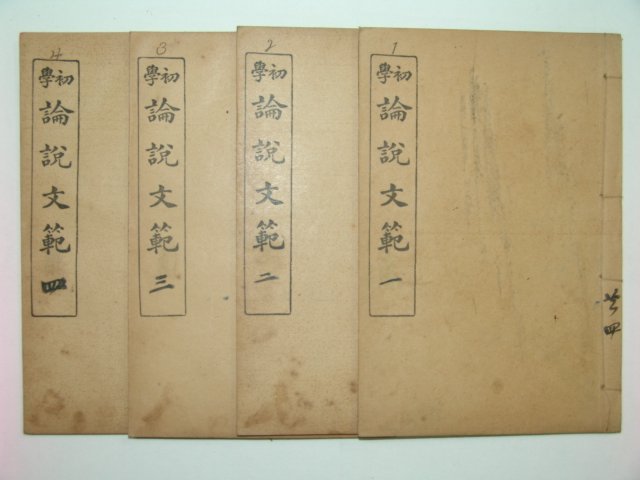 1
初學
論說文範 一
共四
2
初學
論說文範 二
3
初學
論說文範 三
4
初學
論說文範 四